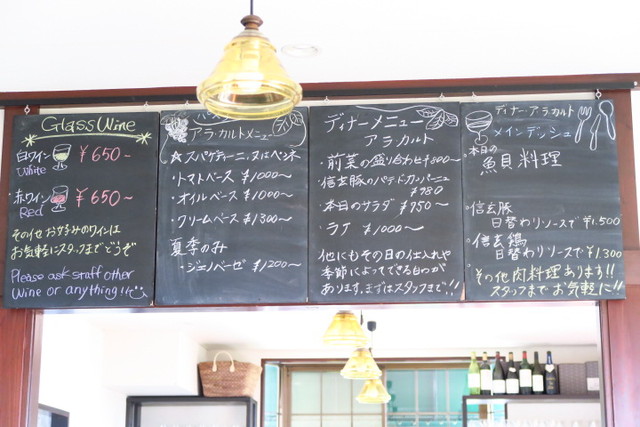 Glass Wine
白ワイン ¥650～
White
赤ワイン ¥650～
Red
その他 お好みのワインは
お気軽にスタッフまでどうぞ
Please ask staff other
Wine or anything!!
アラカルトメニュー
☆スパゲティーニ
・トマトベース ¥1000～
・オイルベース ¥1000～
・クリームベース ¥1300～
夏季のみ
・ジェノベーゼ ¥1200～
ディナーメニュー
アラカルト
・前菜の盛り合わせ
・信玄豚のパテ・ド・カンパーニュ
¥980
・本日のサラダ ¥750～
¥1000～
他にもその日の仕入れや
季節によってできるものが
あります。まずはスタッフまで!!
ディナーアラカルト
メインディッシュ
・本日の
魚貝料理
・信玄豚
日替わりソースで ¥1,500
・信玄鶏
日替わりソースで ¥1,300
・その他肉料理あります!!
スタッフまでお気軽に!!